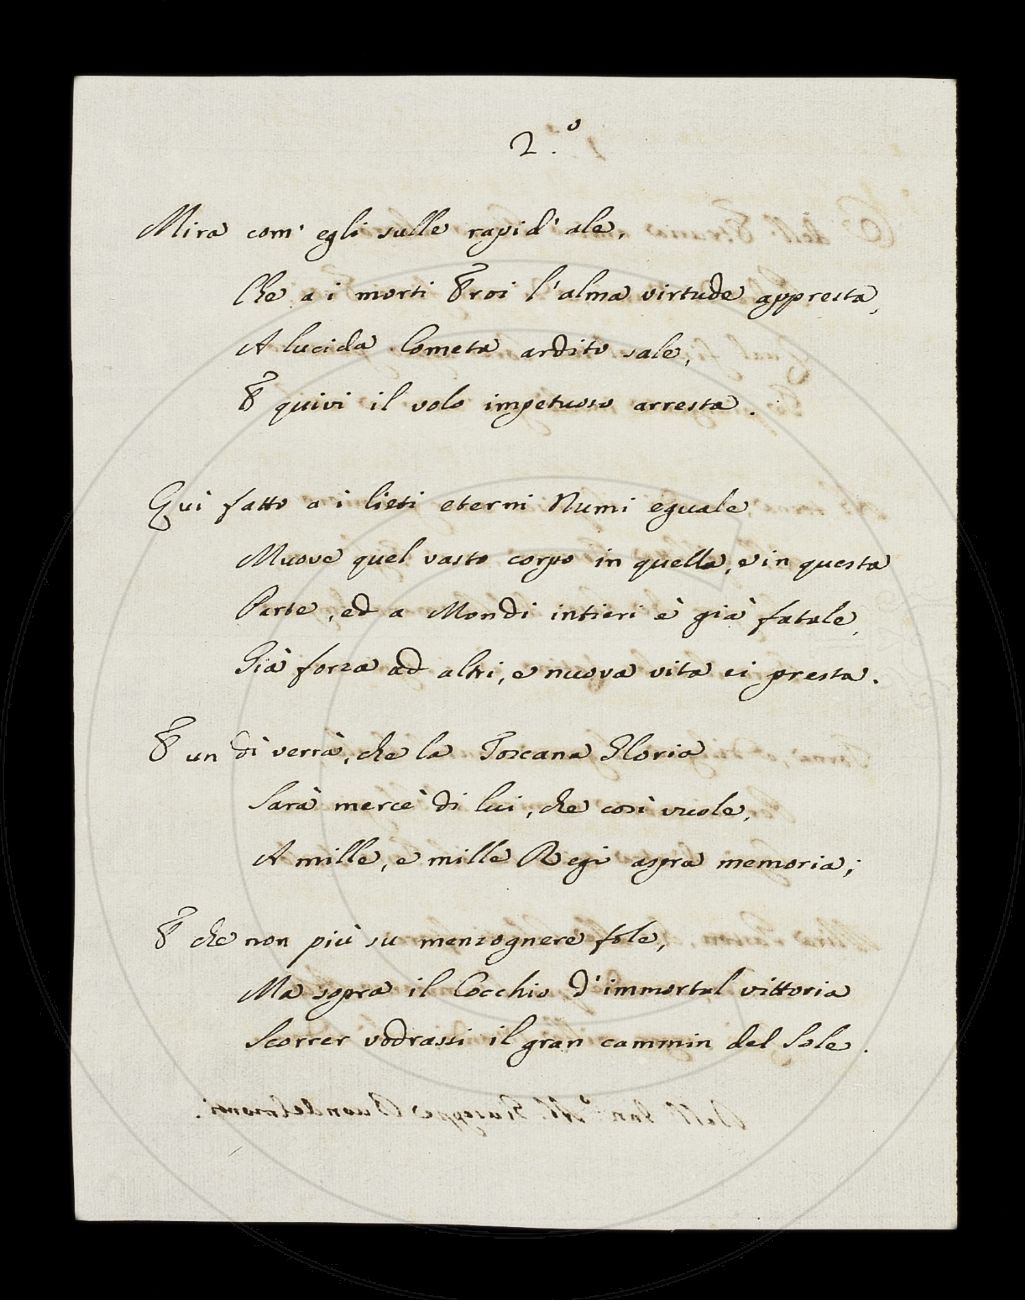 2.º
Mira com' egli sulle rapid' ale,
Che a i morti Eroi l'alma virtude appresta,
A lucida Cometa ardito sale,
E quivi il volo impetuoso arresta.
Qui fatto a i lieti eterni Numi eguale
Muove quel vasto corpo in quella, e in questa
Parte, ed a Mondi intieri è già fatale,
Già forza ad altri, e nuova vita ei presta.
E un dì verrà, che la Toscana Gloria
Sarà mercè di lui, che così vuole,
A mille, e mille Regi aspra memoria;
E che non più su menzognere fole,
Ma sopra il Cocchio d'immortal vittoria
Scorrer vedrassi il gran cammin del Sole.